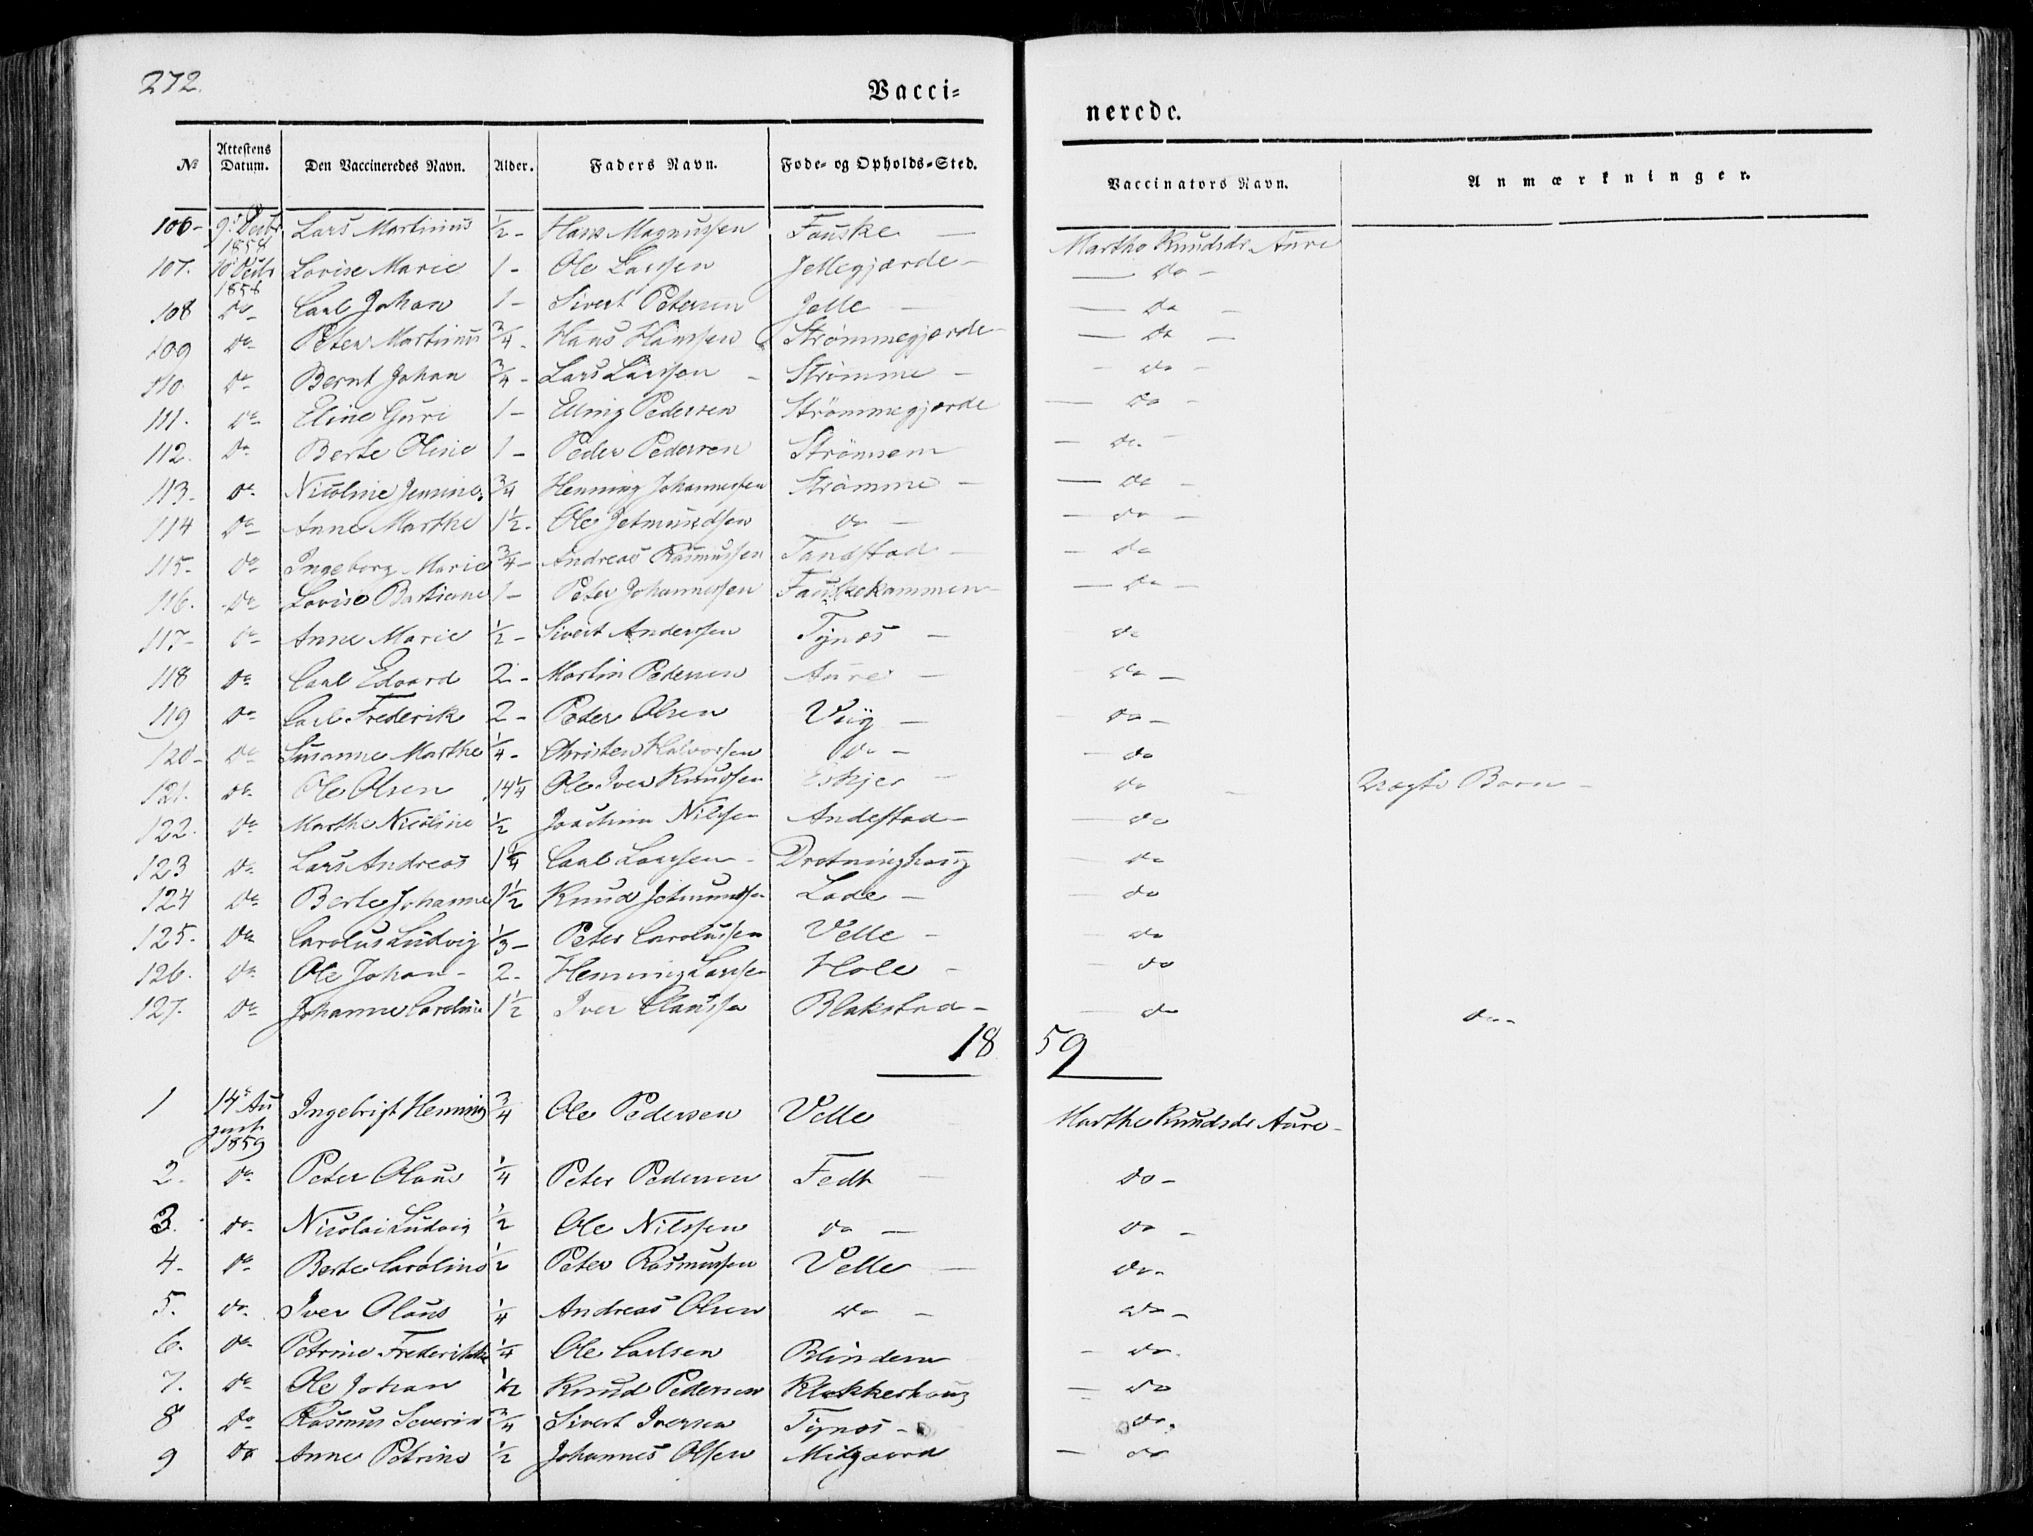 272.
Vacci=
nerede.
№ Attestens Datum. Den Vaccineredes Navn. Alder. Faders Navn. Føde= og Opholds=Sted. Vaccinators Navn. Anmærkninger.
106- 9de Decbr 1858 Lars Martinus 1/2 - Hans Magnussen Fauske — Marthe Knudsdr Aure
107. 10 Decbr 1858 Lovise Marie 1 - Ole Larsen Jellegjærde - — do -
108 do- Carl Johan 1 - Sivert Petersen Jelle — — do -
109 do- Peter Martinus 3/4 - Hans Hanssen Strømmegjærde - — do -
110. do- Bernt Johan 3/4 - Lars Larsson - Strømme - - do -
111. do- Eline Guri 1 - Elling Pedersen Strømmegjærde — do -
112. do- Berte Oline 1 - Peder Pedersen Strømsem — do. -
113. do- Nicoline Jensine 3/4 Henning Johannessen Strømme - — do -
114 do- Anne Marthe 1 1/2 - Ole Jetmundsen do — — do -
115- do- Ingeborg Marie 3/4 - Andreas Rasmussen Tandstad - - do
116. do- Lovise Bastiane 1 - Peter Johannessen Fauskekammen - — do -
117- do- Anne Marie 1/2 - Sivert Anderssen Tynes - do
118 do- Carl Edvard 2 - Martin Pedersen Aure - — do -
119 do- Carl Frederik 2 - Peder Olsen Viig — - do -
120- do- Susanne Marthe 1/4 - Christen Halvorsen do - — do
121. do- Ole Olsen 14 1/4 Ole Iver Knudsen - do - Uægte Barn -
122. do- Marthe Nicoline 1/2 Joachim Nilsen Andestad - — do
123 do- Lars Andreas 1 1/4 Carl Larsen - Drotninghaug do
124 do- Berte Johanne 1 1/2 Knud Jetmundsen Lade — — do
125. do- Carolus Ludvig 1/3 - Peter Carolussen Velle - — do
126. do- Ole Johan - 2 - Henning Larssen Hole - — do
127. do- Johanne Caroline 1 1/2 Iver Clausen Blakstad - — do do-
18 59
1 14de August 1859 Ingebrigt Henning 3/4 Ole Pedersen Velle Marthe Knudsdr Aure -
2. do- Peter Olaus 1/4 Peter Pedersen Fedt — do -
3. do- Nicolai Ludvig 1/2 Ole Nilssen do — do -
4. do- Berte Caroline 1/2 Peter Rasmussen Velle — do -
5. do- Iver Olaus 1/4 Andreas Olsen do - do -
6. do- Petrine Frederikke 1/4 Ole Carlsen Blindem - do.
7. do- Ole Johan 1/12 Knud Pedersen Klokkerhaug — do
8 do- Rasmus Severin 3/4 Sivert Iversen Tynes - do.
9 do Anne Petrine 1/2 Johannes Olsen Midgaard — do